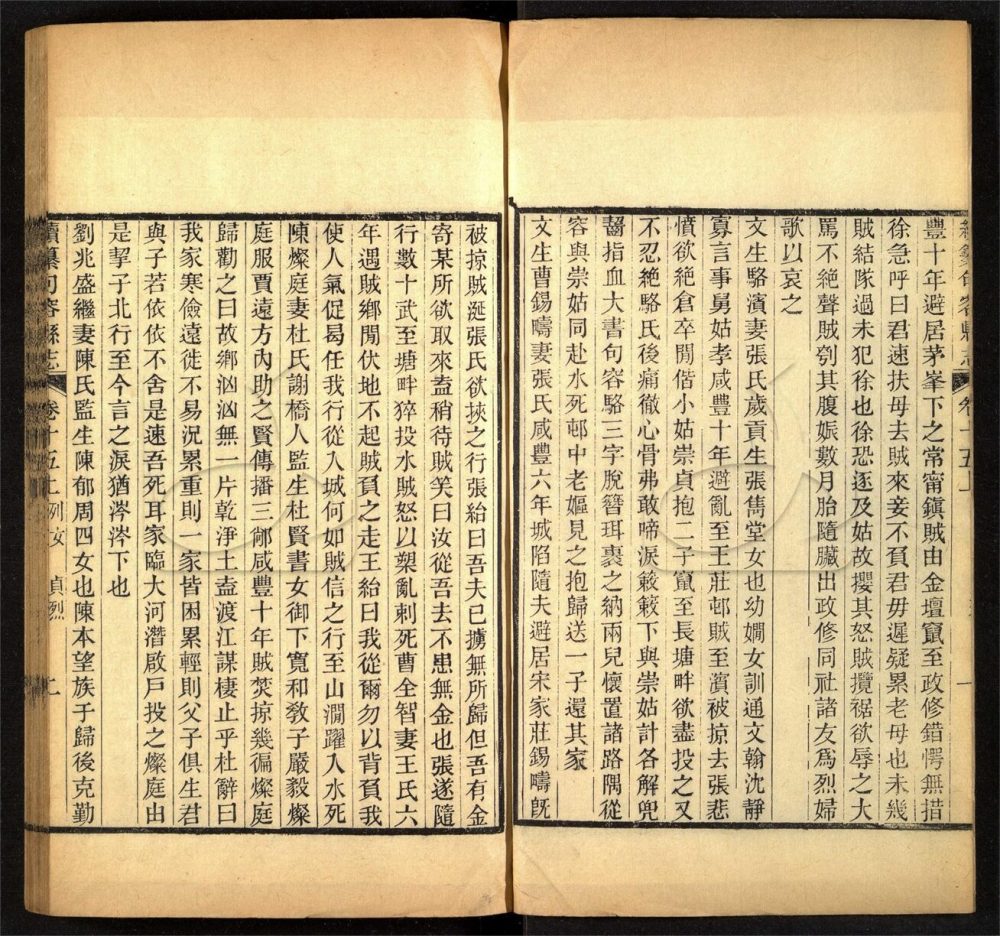 續纂句容縣志 卷十五上
豐十年避居茅峯下之常甯鎮賊由金壇竄至政修錯愕無措
徐急呼曰君速扶母去賊來妾不負君毋遲疑累老母也未幾
賊結隊過未犯徐也徐恐逐及姑故攖其怒賊攬裾欲辱之大
罵不絕聲賊刳其腹娠數月胎隨臟出政修同社諸友爲烈婦
歌以哀之
文生駱濱妻張氏歲貢生張雋堂女也幼嫺女訓通文翰沈静
寡言事舅姑孝咸豐十年避亂至王莊邨賊至濱被掠去張悲
憤欲絶倉卒閒偕小姑崇貞抱二子竄至長塘畔欲盡投之又
不忍絶駱氏後痛徹心骨弗敢啼淚簌簌下與崇姑計各解兜
齧指血大書句容駱三字脫簪珥裹之納兩兒懷置諸路隅從
容與崇姑同赴水死邨中老嫗見之抱歸送一子還其家
文生曹錫疇妻張氏咸豐六年城陷隨夫避居宋家莊錫疇旣
被掠賊涎張氏欲挾之行張紿曰吾夫已擄無所歸但吾有金
寄某所欲取來盍稍待賊笑曰汝從吾去不患無金也張遂隨
行數十武至塘畔猝投水賊怒以槊亂刺死曹全智妻王氏六
年遇賊鄉閒伏地不起賊負之走王紿曰我從爾勿以背負我
使人氣促曷任我行從入城何如賊信之行至山澗躍入水死
陳燦庭妻杜氏謝橋人監生杜賢書女御下寬和敎子嚴毅燦
庭服賈遠方內助之賢傳播三鄰咸豐十年賊焚掠幾徧燦庭
歸勸之曰故鄉洶洶無一片乾淨土盍渡江謀棲止乎杜辭曰
我家寒儉遠徙不易況累重則一家皆困累輕則父子俱生君
與子若依依不舍是速吾死耳家臨大河潛啟戶投之燦庭由
是挈子北行至今言之淚猶涔涔下也
劉兆盛繼妻陳氏監生陳郁周四女也陳本望族于歸後克勤
續纂句容縣志 卷十五上列女 貞烈